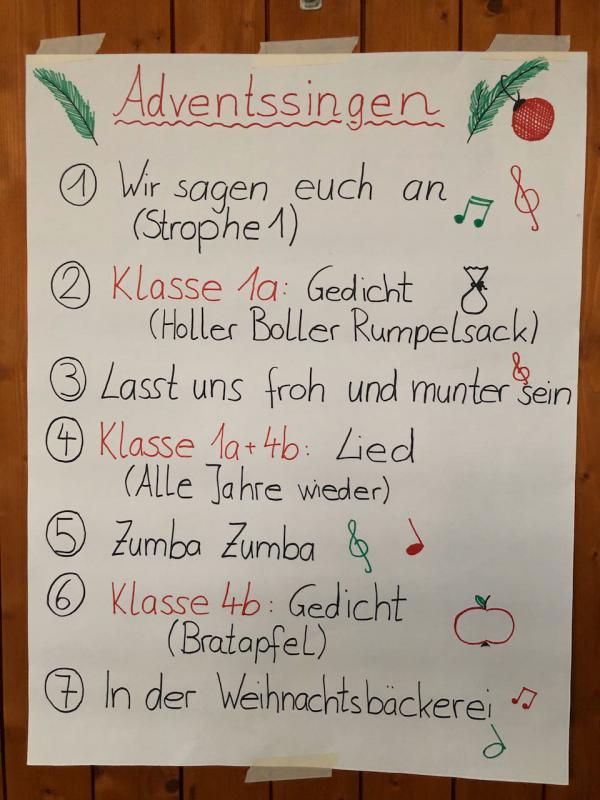 Adventssingen
① Wir sagen euch an
(Strophe 1)
② Klasse 1a: Gedicht
(Holler Boller Rumpelsack)
③ Lasst uns froh und munter sein
④ Klasse 1a + 4b: Lied
(Alle Jahre wieder)
⑤ Zumba Zumba
⑥ Klasse 4b: Gedicht
(Bratapfel)
⑦ In der Weihnachtsbäckerei